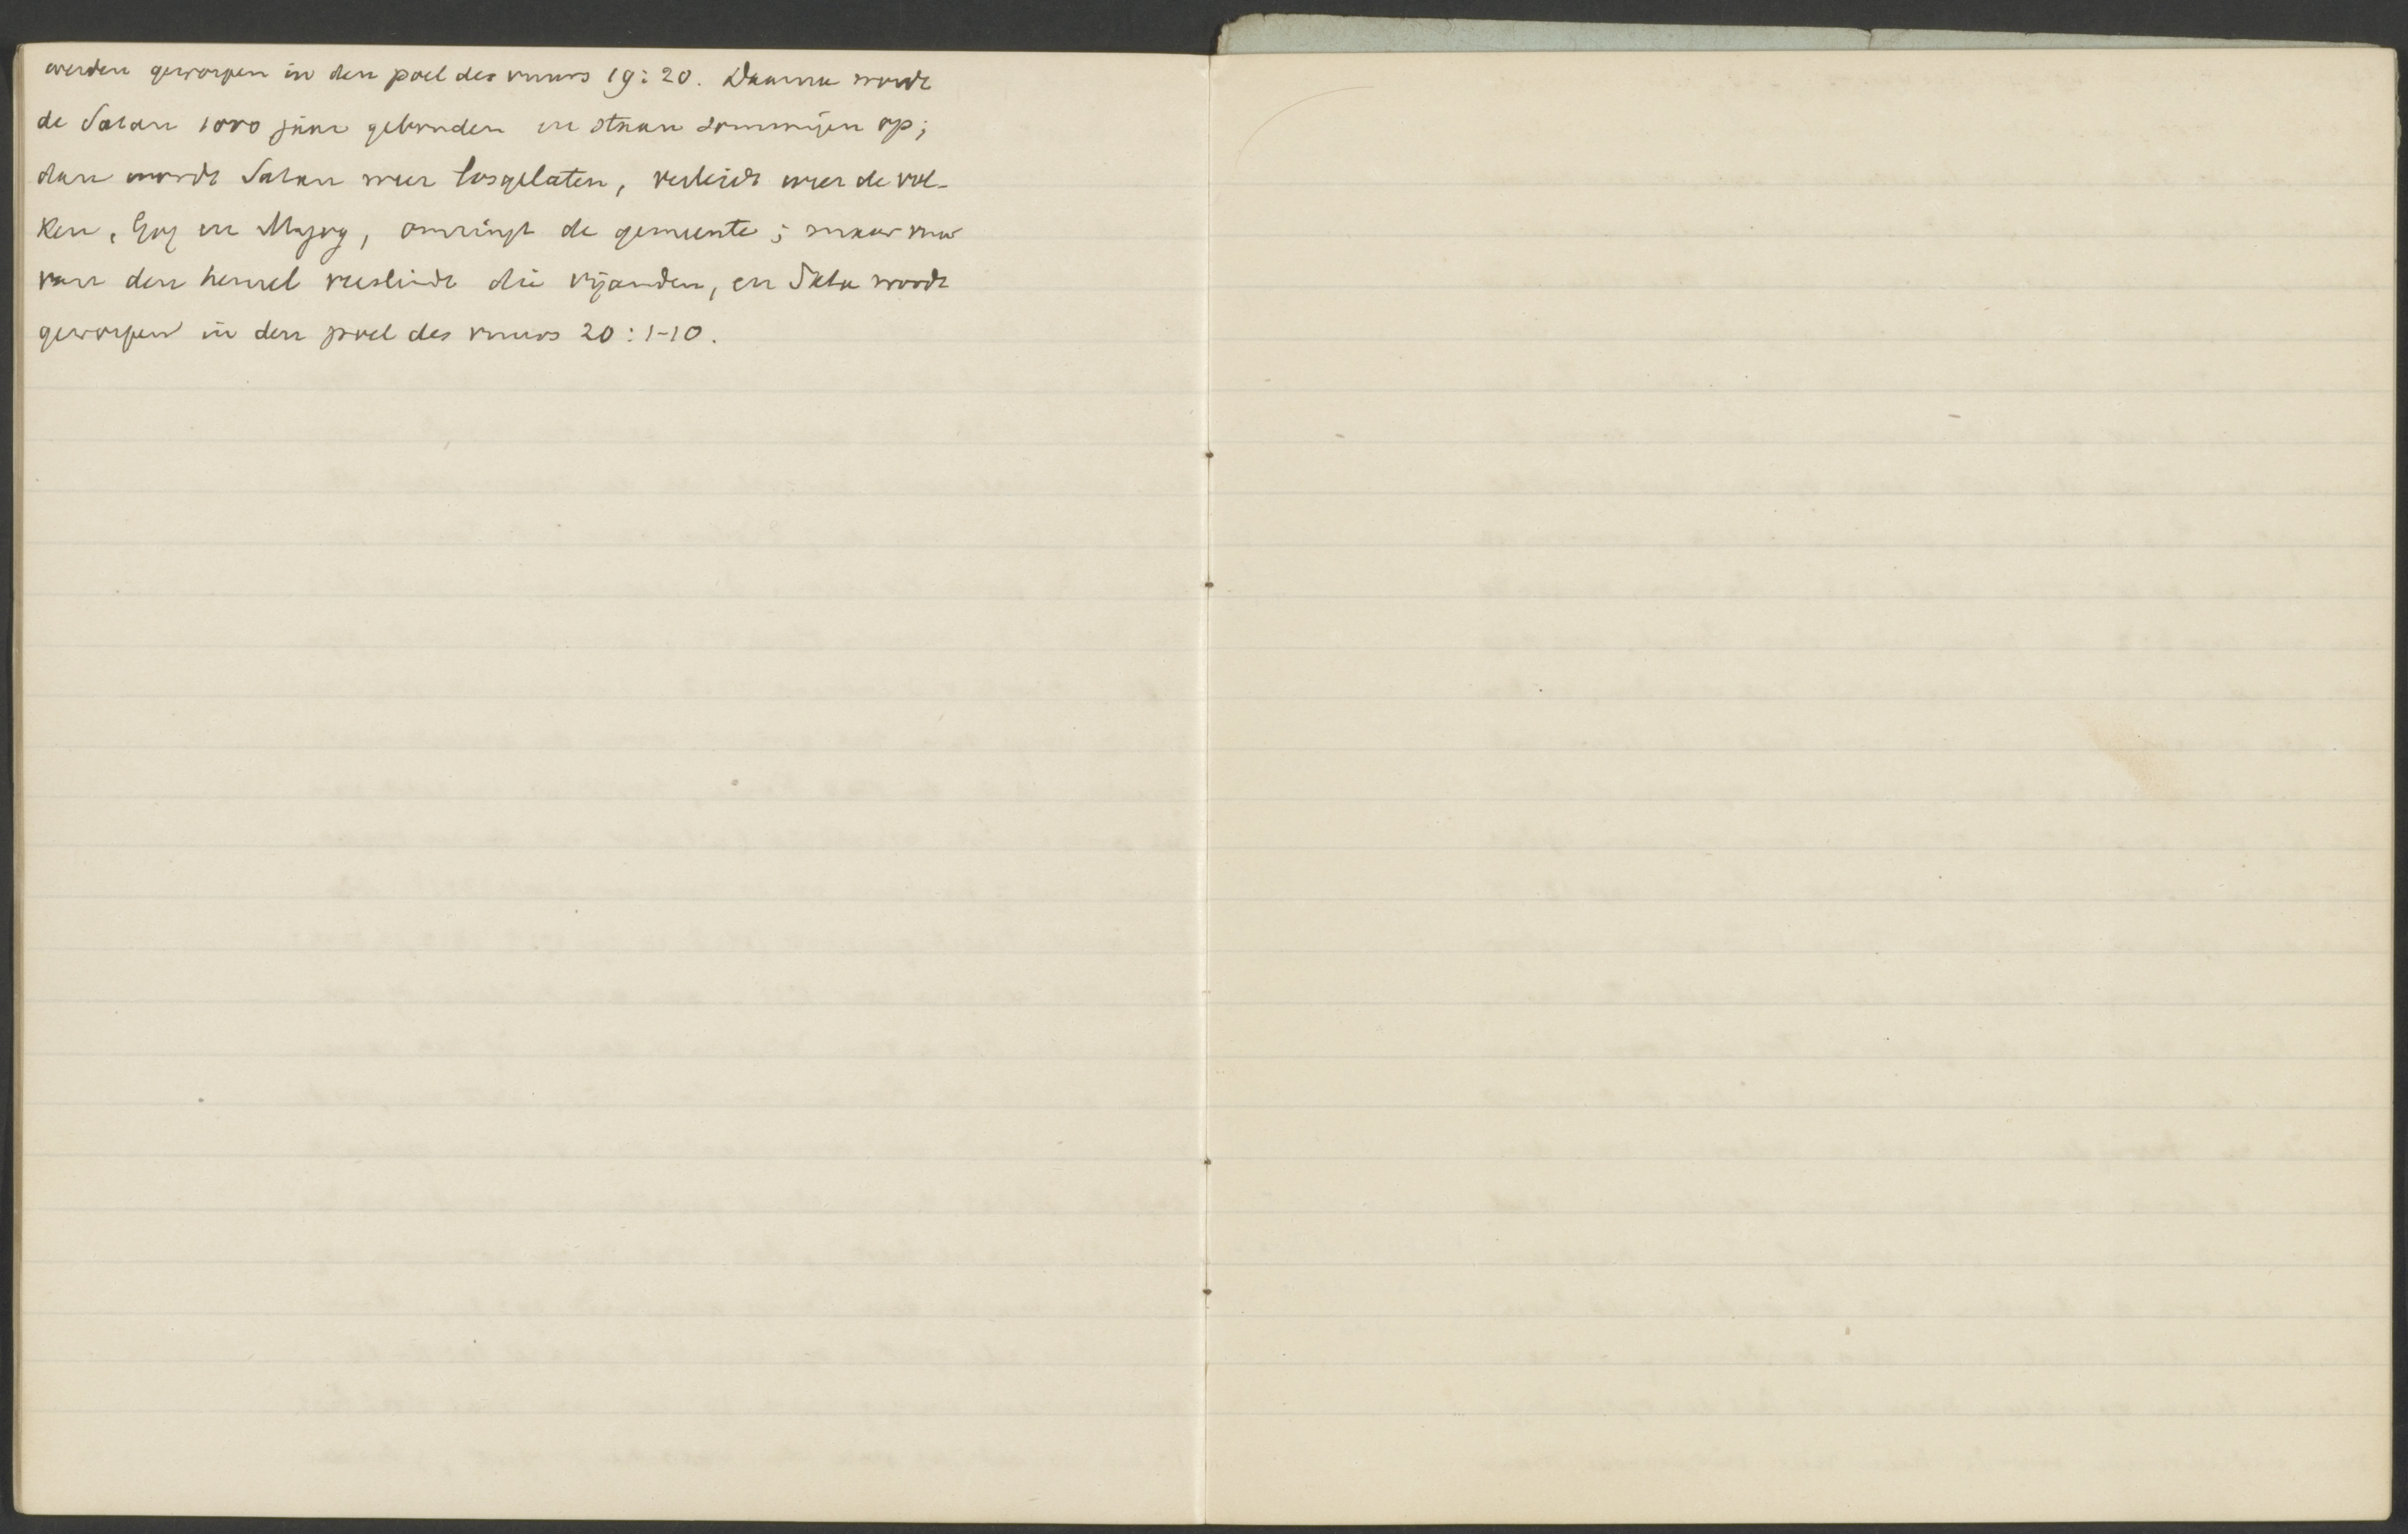 werden geworpen in den poel des vuurs 19:20. Daarna wordt
de Satan 1000 jaar gebonden en staan sommigen op;
dan wordt Satan weer losgelaten, verleidt weer de vol-
ken, Gog en Magog, omringt de gemeente; maar vuur
van den hemel verslindt die vijanden, en Satan wordt
geworpen in den poel des vuurs 20:1-10.